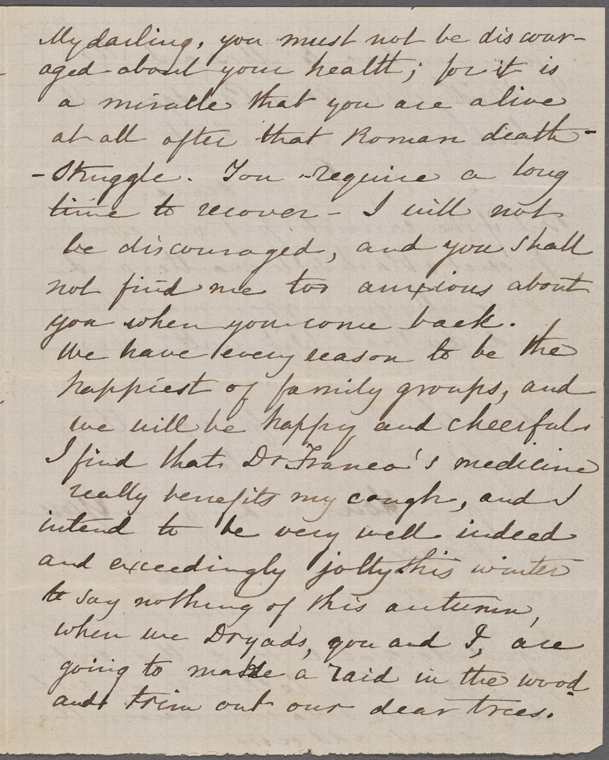 My darling, you must not be discour-
aged about your health; for it is
a miracle that you are alive
at all after that Roman death-
-struggle. You require a long
time to recover - I will not
be discouraged, and you shall
not find me too anxious about
you when you come back.
We have every reason to be the
happiest of family groups, and
we will be happy and cheerful.
I find that Dr Franco's medicine
really benefits my cough, and I
intend to be very well indeed
and exceedingly jolly this winter
to say nothing of this autumn,
when we Dryads, you and I, are
going to make a raid in the wood
and trim out our dear trees.